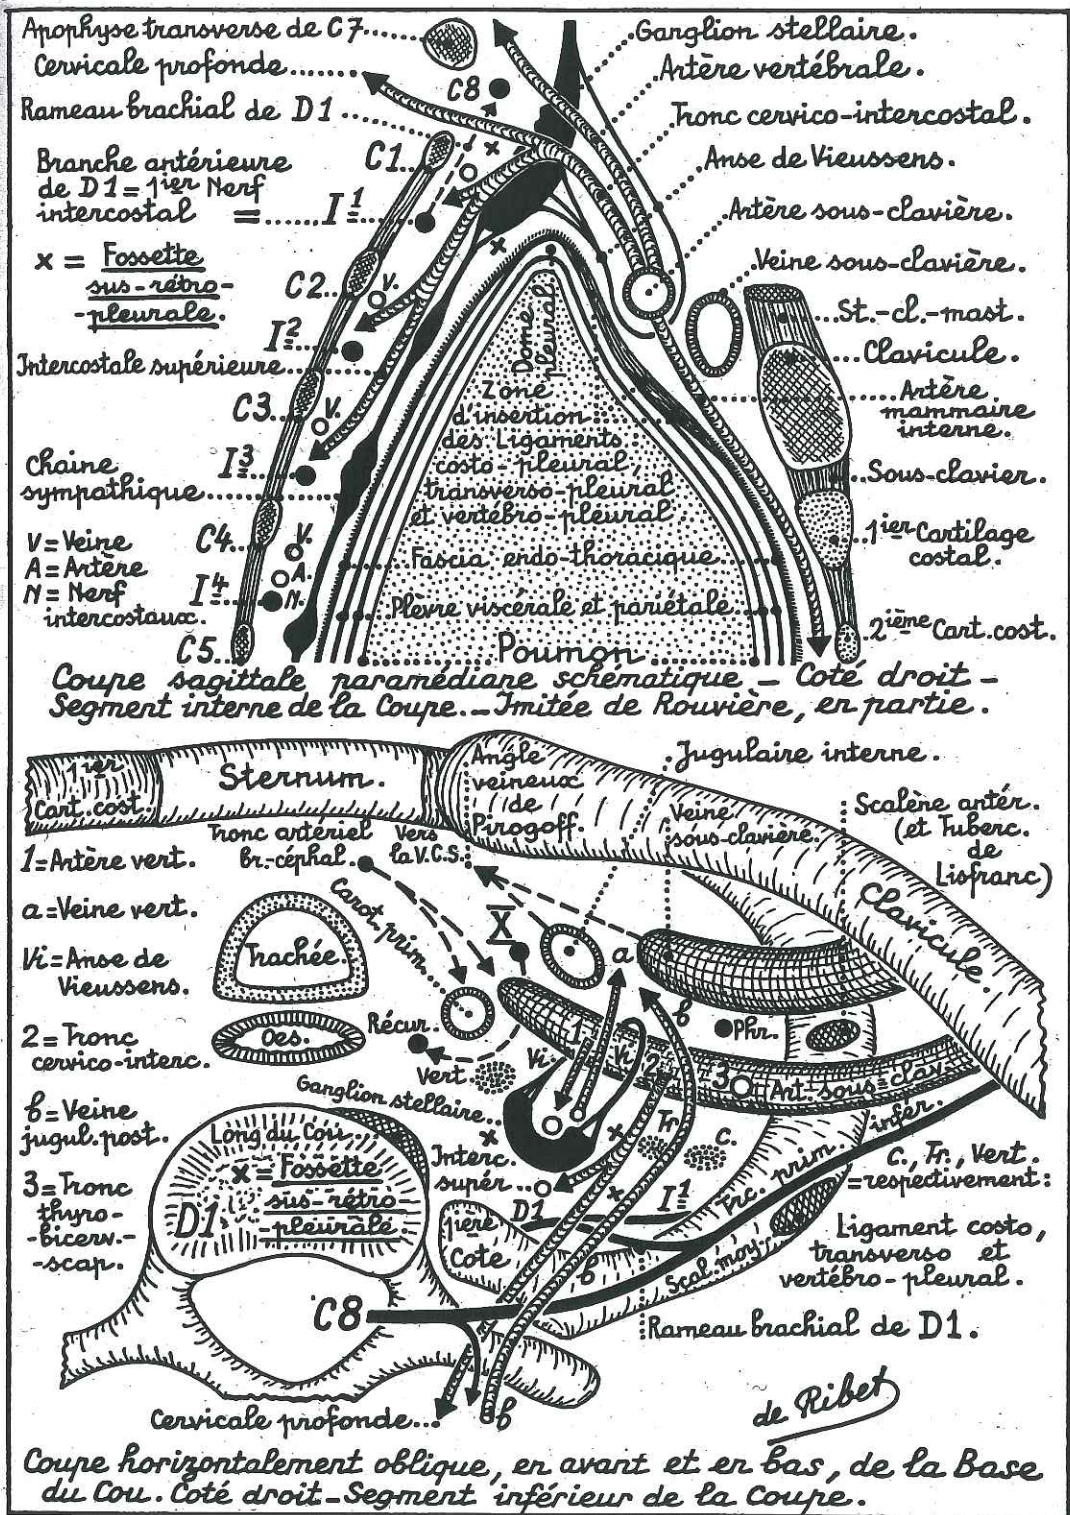 Apophyse transverse de C7
Cervicale profonde
Rameau brachial de D1
Branche antérieure
de D1 = 1ier Nerf
intercostal = I1
x = Fossette
sus-rétro-
-pleurale.
C8
C1
C2
I2
Intercostale supérieure
C3
I3
Chaine
sympathique
C4
V = Veine
A = Artère
N = Nerf
intercostaux.
I4
C5
x
x
V.
V.
V.
A.
N.
Ganglion stellaire.
Artère vertébrale.
Tronc cervico-intercostal.
Anse de Vieussens.
Artère sous-clavière.
Veine sous-clavière.
St.-cl.-mast.
Clavicule.
Artère
mammaire
interne.
Sous-clavier.
1ier Cartilage
costal.
2ième Cart. cost.
Dome
pleural
Zone
d'insertion
des Ligaments
costo-pleural,
transverso-pleural
et vertébro-pleural
Fascia endo-thoracique
Plèvre viscérale et pariétale
Poumon
Coupe sagittale paramédiane schématique - Coté droit -
Segment interne de la Coupe. - Imitée de Rouvière, en partie.
1ier
Cart. cost.
Sternum.
Angle
veineux
(de
Pirogoff.
Jugulaire interne.
Veine
sous-clavière.
Scalène antér.
(et Tuberc.
de
Lisfranc)
Clavicule.
Tronc artériel
br.-céphal.
Vers
la V.C.S.
1 = Artère vert.
a = Veine vert.
Vi = Anse de
Vieussens.
2 = Tronc
cervico-interc.
b = Veine
jugul. post.
3 = Tronc
thyro-
-bicerv.-
-scap.
Trachée.
Oes.
Carot. prim.
X
a
b
Phr.
Récur.
Vert.
Vi.
1
Vi
2
3
Art. sous-clav.
Ganglion stellaire
x
x
x
Tr.
c.
Interc.
supér.
D1
I1
1ère
Cote
b
Trc. prim. infér.
Scal. moy.
Long du Cou.
x = Fossette
sus-rétro
-pleurale
D1
C8
c., Tr., Vert.
= respectivement:
Ligament costo,
transverso et
vertébro-pleural.
Rameau brachial de D1.
Cervicale profonde
b
de Ribet
Coupe horizontalement oblique, en avant et en bas, de la Base
du Cou. Coté droit - Segment inférieur de la Coupe.